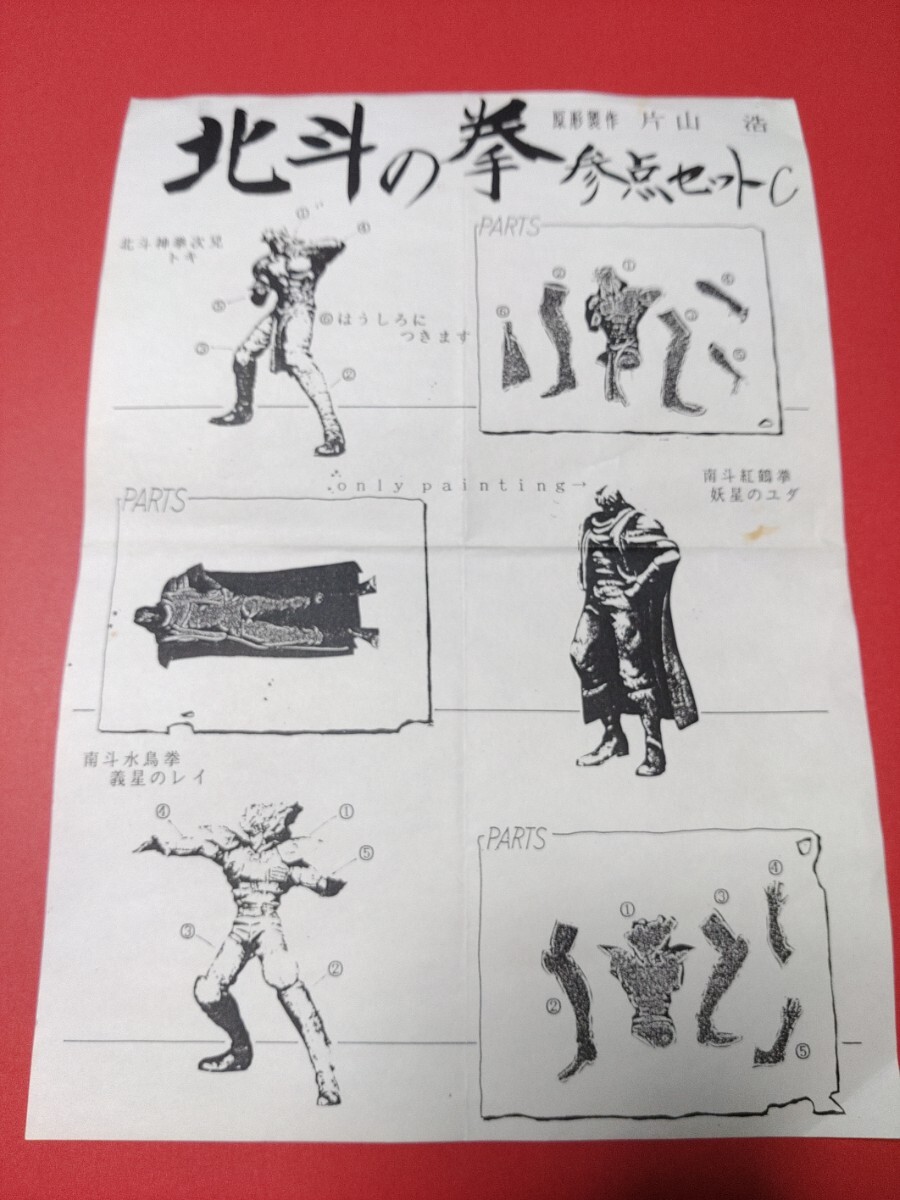 北斗の拳
原形製作 片山 浩
参点セットC
北斗神拳次兄
トキ
①
④
⑤
⑥はうしろに
つきます
③
②
PARTS
①
②
④
⑥
③
⑤
only painting→
南斗紅鶴拳
妖星のユダ
PARTS
南斗水鳥拳
義星のレイ
④
①
⑤
③
②
PARTS
④
①
③
②
⑤